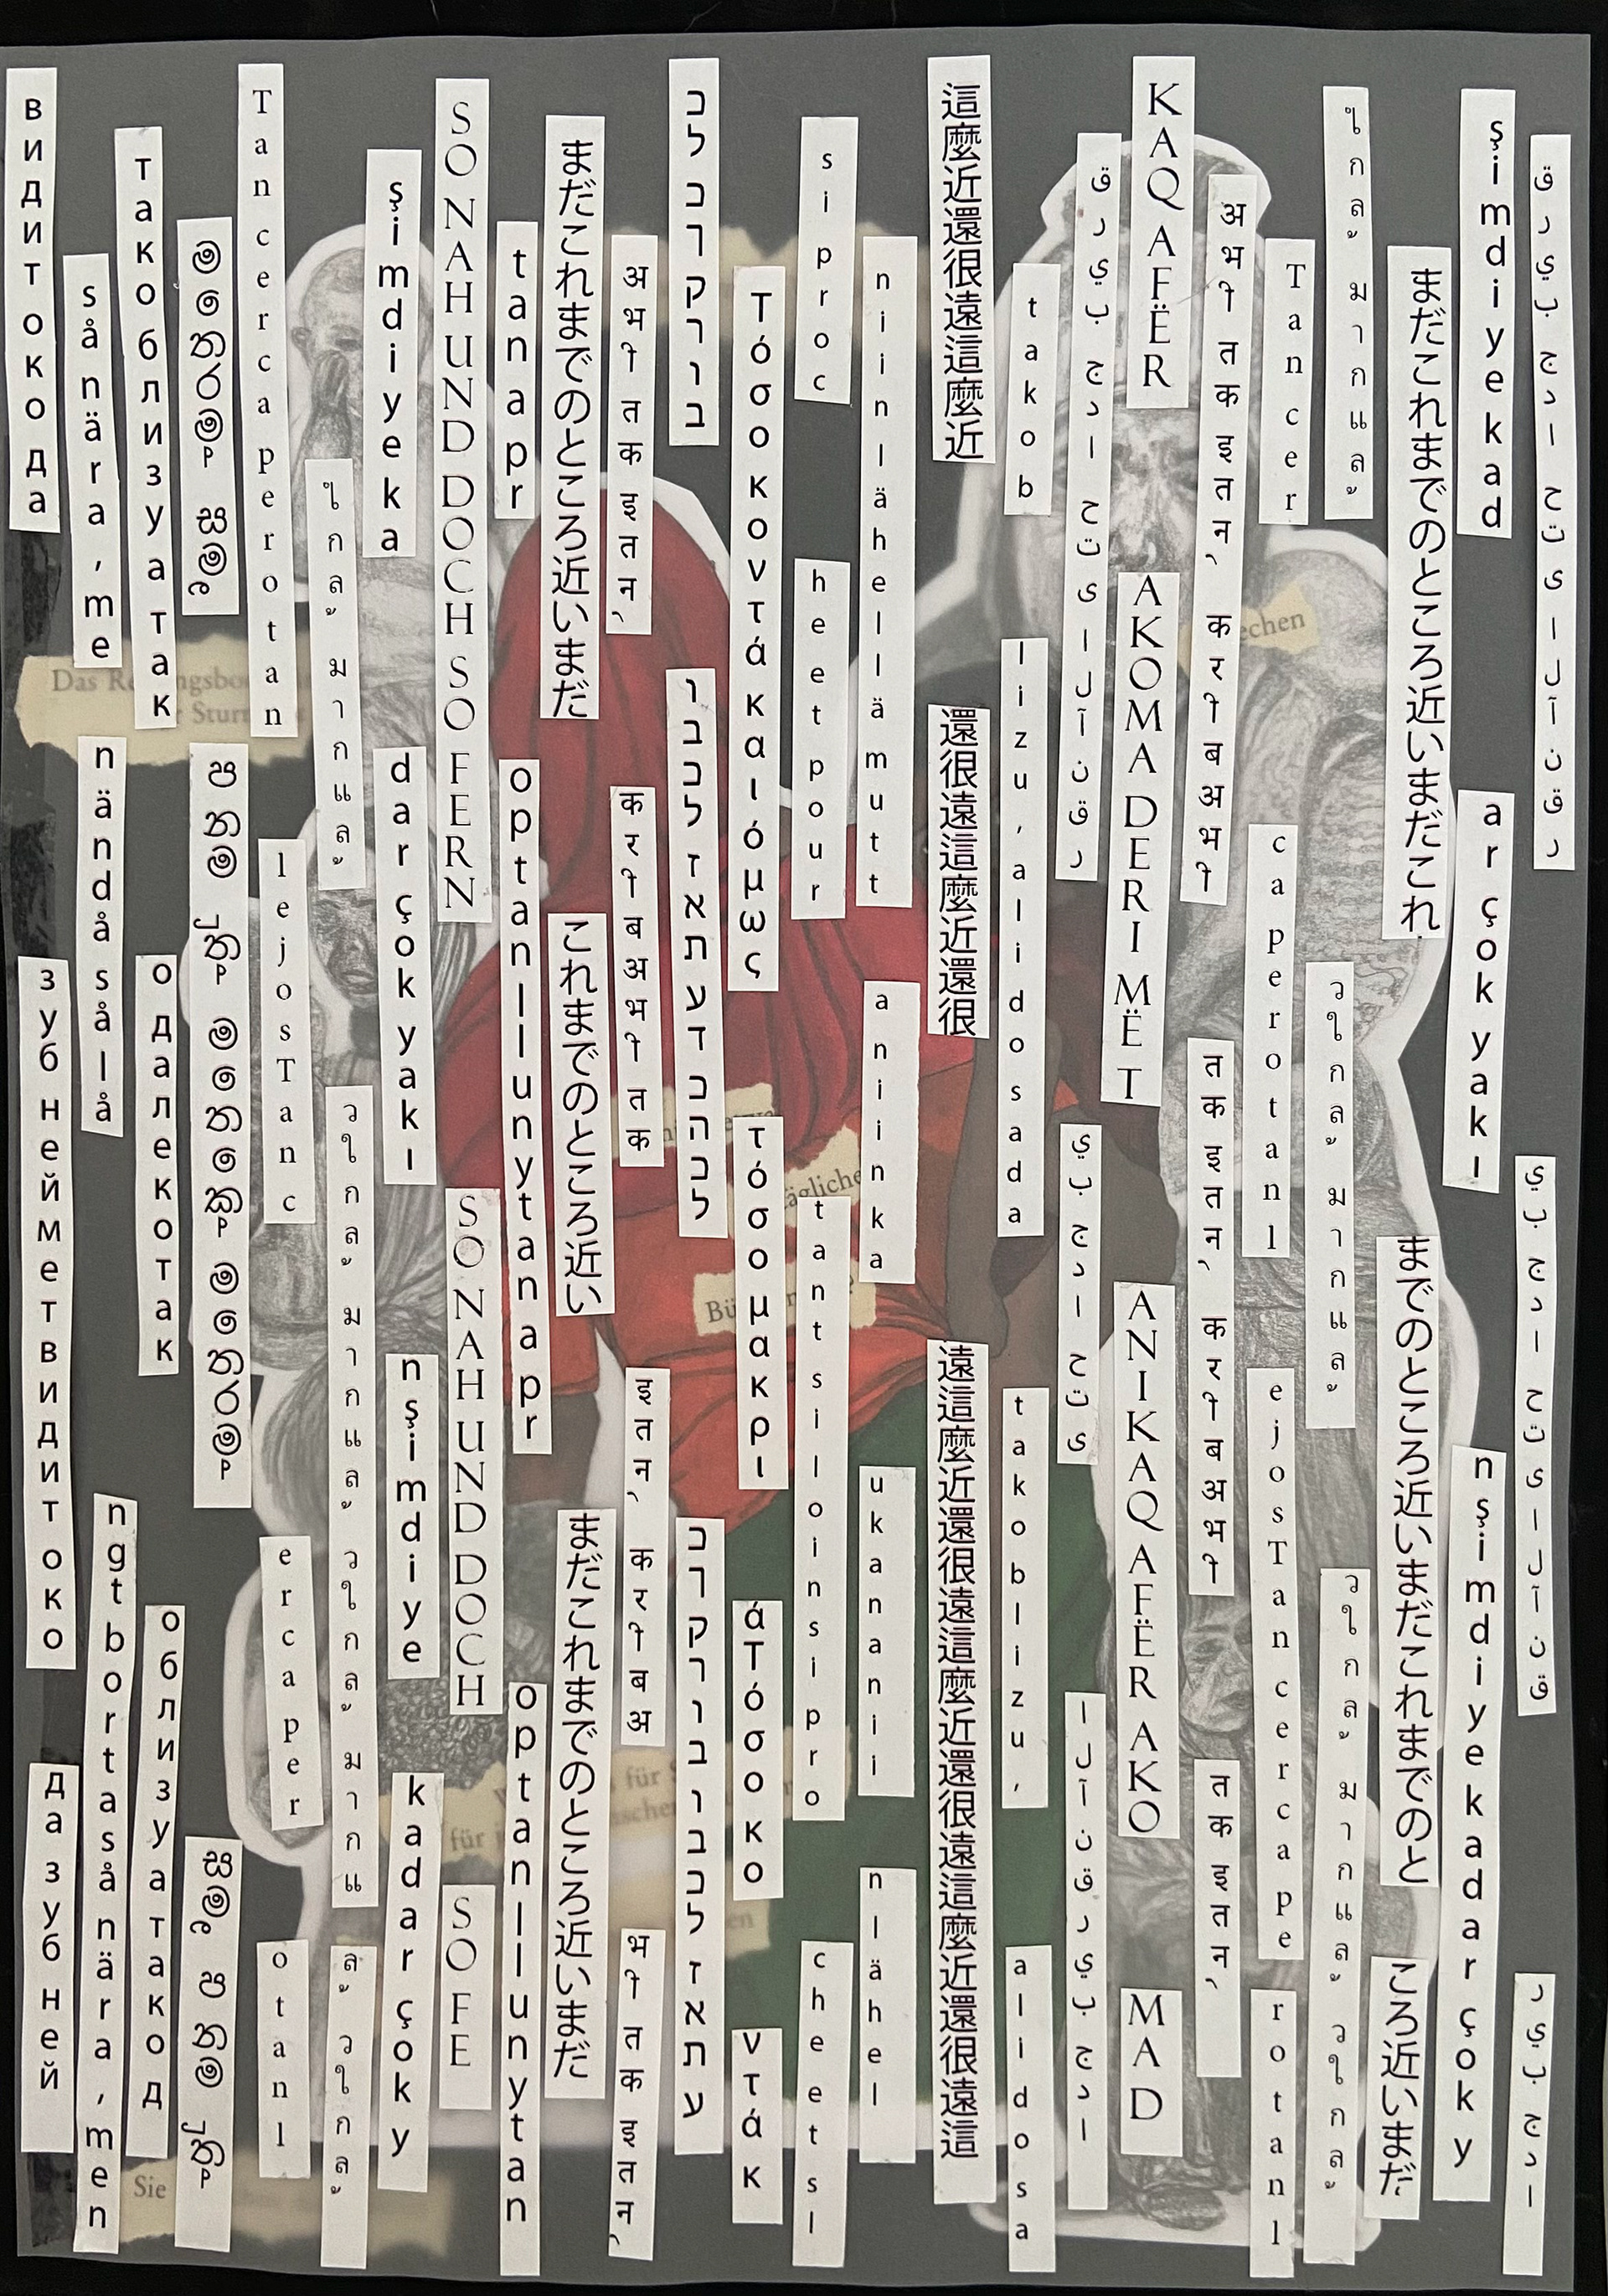 видитокода
зубнейметвидитоко
дазубней
sånära,me
nändåsålå
ngtbortasånära,men
такоблизуатак
одалекотак
облизуатакод
Tancercaperotan
lejosTanc
ercaper
otanl
ใกล้มากแล้
วใกล้มากแล้วใกล้มากแ
ล้วใกล้
şimdiyeka
darçokyakı
nşimdiye
kadarçoky
SO NAH UND DOCH SO FERN
SO NAH UND DOCH
SO FE
tanapr
optanllunytanapr
optanllunytan
まだこれまでのところ近いまだ
これまでのところ近い
まだこれまでのところ近いまだ
अभी तक इतने
करीब अभी तक
इतने करीब अ
भी तक इतने
כל כך קרוב
ובכל זאת עד כה כל
כך קרוב ובכל זאת ע
Τόσο κοντά και όμως
τόσο μακρι
άΤόσο κο
ντά κ
siproc
heetpour
tantsiloinsipro
cheetsl
niinlähellämutt
aniinka
ukananii
nlähel
這麼近還很遠這麼近
還很遠這麼近還很
遠這麼近還很遠這麼近還很遠這麼近還很遠這
takob
lizu,alidosada
takoblizu,
alidosa
قريب جدا حتى الآن قر
يب جدا حتى
الآن قريب جدا
KAQ AFËR
AKOMA DERI MËT
ANI KAQ AFËR AKO
MA D
अभी तक इतने करीब अभी
तक इतने करीब अभी
तक इतने
Tancer
caperotanl
ejosTancercape
rotanl
ใกล้มากแล้
วใกล้มากแล้
วใกล้มากแล้วใกล้
まだこれまでのところ近いまだこれ
までのところ近いまだこれまでのと
ころ近いまだ
şimdiyekad
arçokyakı
nşimdiyekadarçoky
قريب جدا حتى الآن قر
يب جدا حتى الآن ق
ريب جدا
echen
äglichen
für
Sie